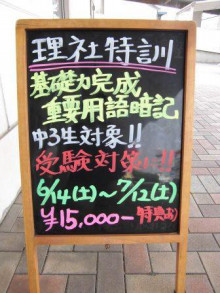 理社特訓
基礎力完成
重要用語暗記
中3生対象!!
受験対策に!!
6/14(土)~7/12(土)
¥15,000-特典あり